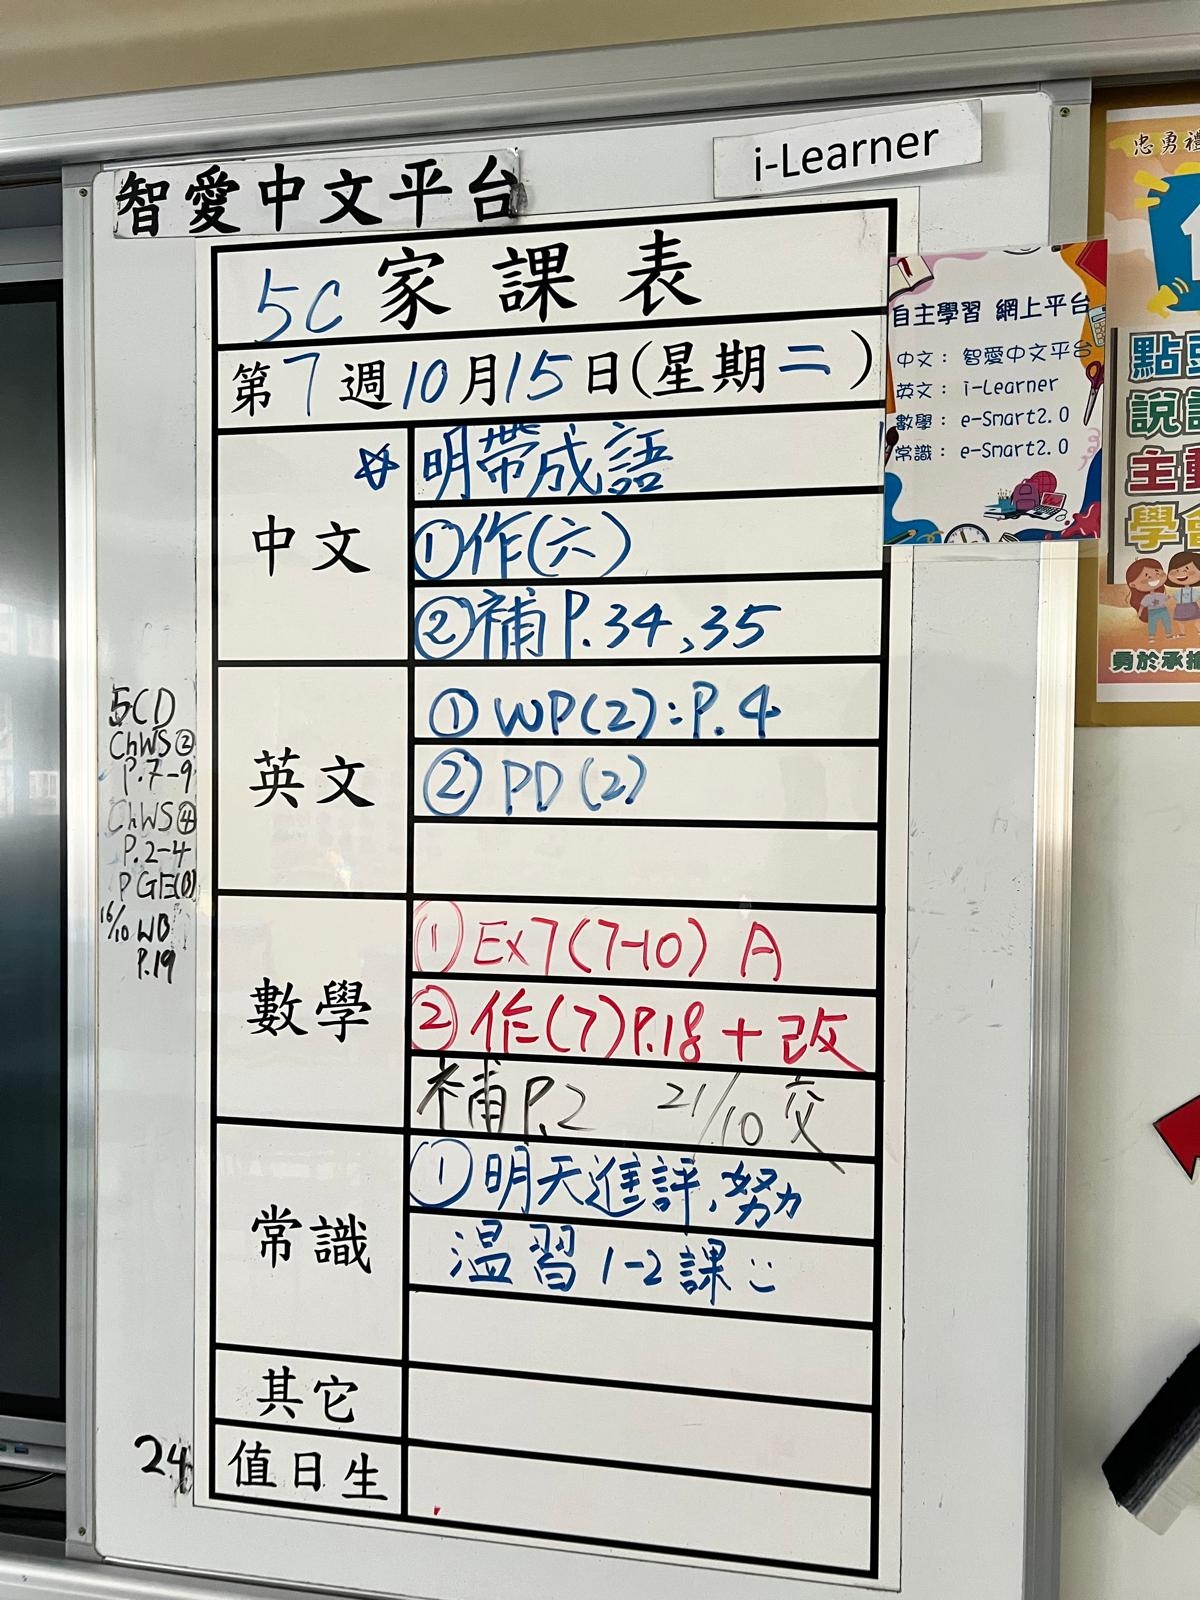 智愛中文平台
i-Learner
5C 家課表
第7週10月15日(星期二)
中文
☆明帶成語
①作(六)
②補P.34,35
英文
①WP(2):P.4
②PD(2)
數學
①Ex7(7-10) A
②作(7)P.18+改
補P.2 21/10交
常識
①明天進評,努力
温習1-2課
其它
值日生
24
5CD
ChWS②
P.7-9
ChWS④
P.2-4
PGE(B)
16/10 WB
P.19
自主學習 網上平台
中文：智愛中文平台
英文：i-Learner
數學：e-Smart2.0
常識：e-Smart2.0
忠勇
點
說
主
學
勇於承